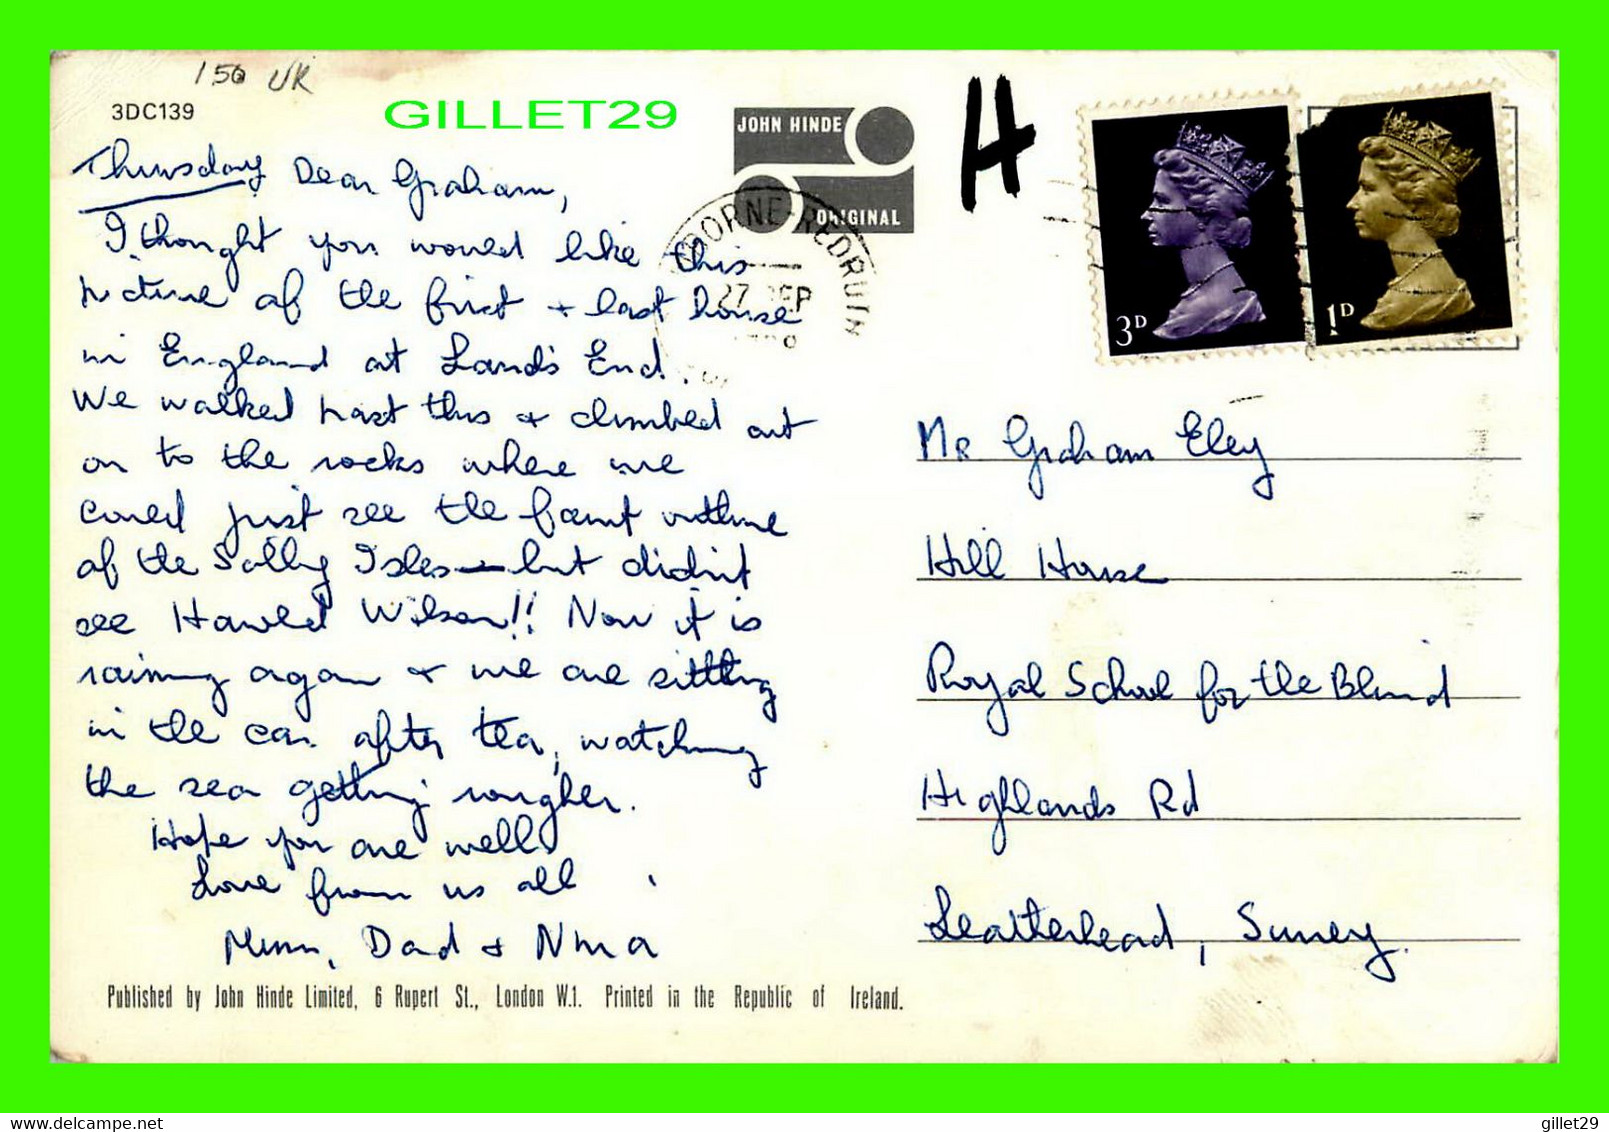 150 UK
3DC139
GILLET29
JOHN HINDE
ORIGINAL
H
BORNE-REDRUTH
27 SEP
3D
1D
Thursday Dear Graham,
I thought you would like this
picture of the first + last house
in England at Land's End.
We walked past this + climbed out
on to the rocks where we
could just see the faint outline
of the Scilly Isles — but didn't
see Harold Wilson!! Now it is
raining again + we are sitting
in the car after tea, watching
the sea getting rougher.
Hope you are well
Love from us all
Mum, Dad +
Mr Graham Eley
Hill House
Royal School for the Blind
Highlands Rd
Leatherhead, Surrey.
Published by John Hinde Limited, 6 Rupert St., London W.1. Printed in the Republic of Ireland.
gillet29